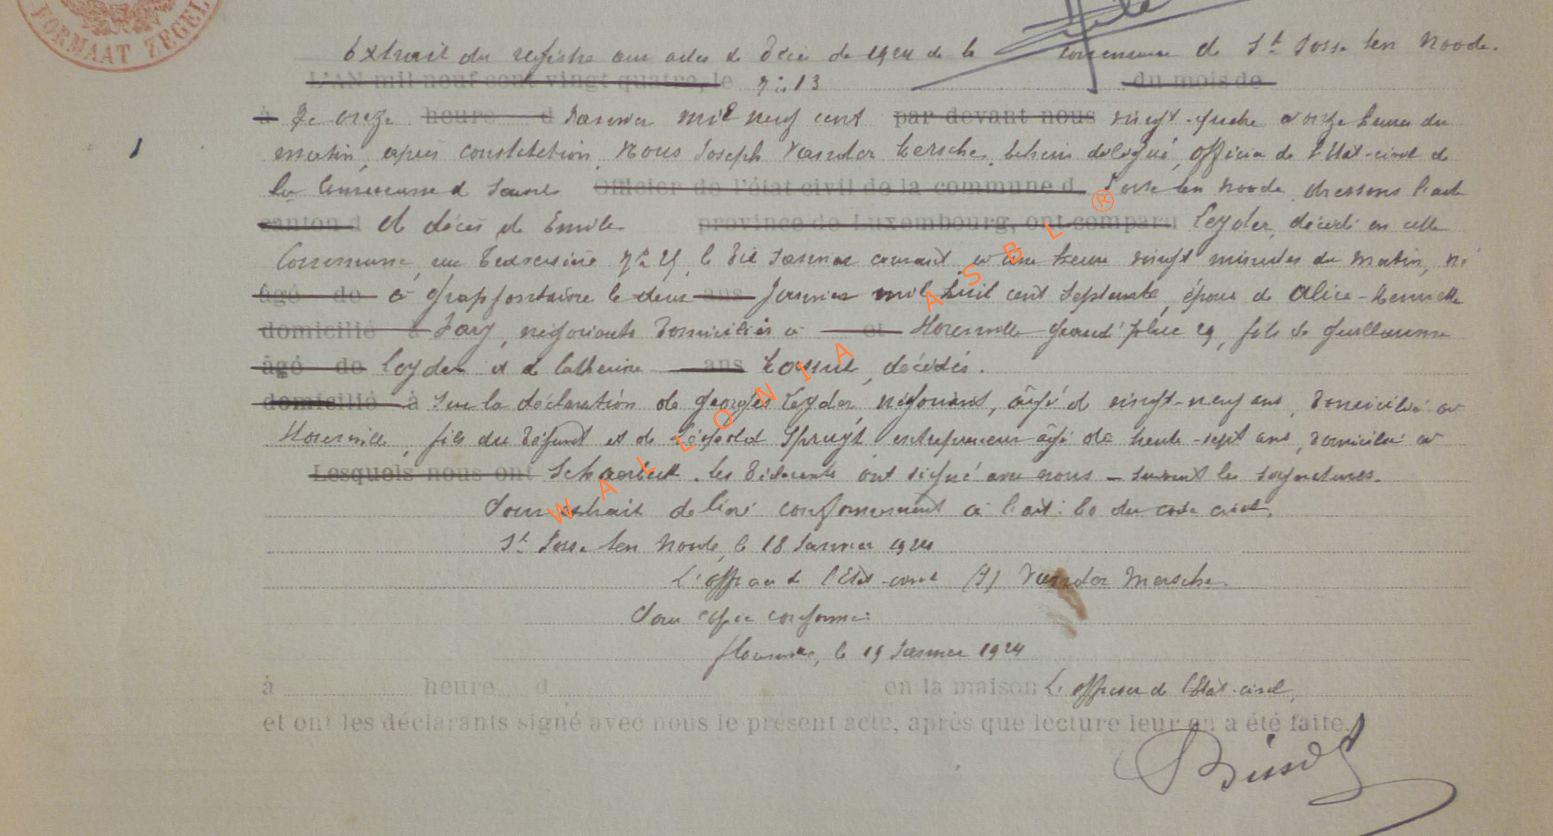 FORMAAT ZEGEL
Extrait du registre aux actes de décès de 1924 de la commune de St Josse ten Noode.
L'AN mil neuf cent vingt quatre, le n: 13 du mois de
à Le onze heure d Janvier mil neuf cent par devant nous vingt-quatre à onze heures du
matin, après constatation, Nous Joseph Vander Mersche, échevin délégué, officier de l'Etat-civil de
la Commune d Officier de l'état civil de la commune d Josse ten Noode, dressons l'acte
canton d de décès de Emile province de Luxembourg, ont comparu Leyder, décédé en cette
Commune, rue le dix Janvier courant à une heure vingt minutes du matin, né
âgé de à Grapfontaine le deux ans Janvier mil huit cent septante, époux de Alice-Henriette
domicilié à négociants domiciliés à et Florenville Grand'place 29, fils de Guillaume
âgé de Leyder et de Catherine ans décédés.
domicilié à Sur la déclaration de Georges Leyder, négociant, âgé de vingt-neuf ans, domicilié à
Florenville, fils du défunt et de Léopold Spruyt entrepreneur âgé de trente-sept ans, domicilié à
Lesquels nous ont Schaerbeek. les déclarants ont signé avec nous – suivent les signatures.
Pour extrait délivré conformément à l'art: 80 du code civil.
St Josse ten Noode, le 18 Janvier 1924
L'officier de l'Etat-civil (s) Vander Mersche.
Pour copie conforme:
Florenville, le 19 Janvier 1924
à heure d en la maison L'officier de l'Etat-civil,
et ont les déclarants signé avec nous le présent acte, après que lecture leur en a été faite.
WALLONIA ASBL ®